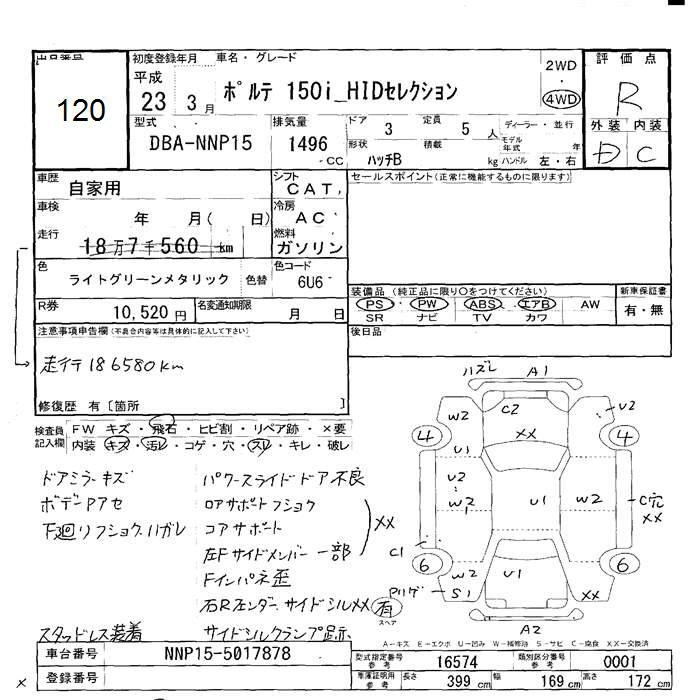 出品番号
120
初度登録年月 車名・グレード
平成 23 3月
ポルテ 150i_HIDセレクション
2WD
・
4WD
評価点
R
型式
DBA-NNP15
排気量
1496
CC
ドア 3
定員 5 人
形状 ハッチB
積載 kg
ディーラー・並行
モデル年式 年
ハンドル 左・右
外装 内装
D C
車歴 自家用
シフト CAT,
セールスポイント(正常に機能するものに限ります)
車検 年 月( 日)
冷房 AC
走行 18万7千560 km
燃料 ガソリン
色 ライトグリーンメタリック 色替
色コード 6U6
R券 10,520円
名変通知期限 月 日
装備品 (純正品に限り○をつけてください)
PS・PW・ABS・エアB AW
SR ナビ TV カワ
新車保証書
有・無
注意事項申告欄(不具合内容等は具体的に記入して下さい)
後日品
走行186580km
修復歴 有〔箇所 〕
検査員記入欄
FW キズ・飛石・ヒビ割・リペア跡・×要
内装・キズ・汚レ・コゲ・穴・スレ・キレ・破レ
ドアミラーキズ
パワースライドドア不良
ボデーPアセ
ロアサポートフショク
下廻リフショク.ハガレ
コアサポート
左Fサイドメンバー一部
XX
Fインパネ歪
右Rフェンダー.サイドシルXX
スタッドレス装着
サイドシルクランプ跡.
ハズレ A1
W2 C2 U2
XX
4 4
U1
U2
W2 U1 W2 C穴
XX
C1
6 6
W2 U1
Pリケ S1 XX
有
スペア
A2
A－キズ E－エクボ U－凹み W－補修跡 S－サビ C－腐食 XX－交換済
車台番号 NNP15-5017878
型式指定番号 参考 16574
類別区分番号 参考 0001
登録番号
車庫証明用 参考 長さ 399 cm 幅 169 cm 高さ 172 cm
×